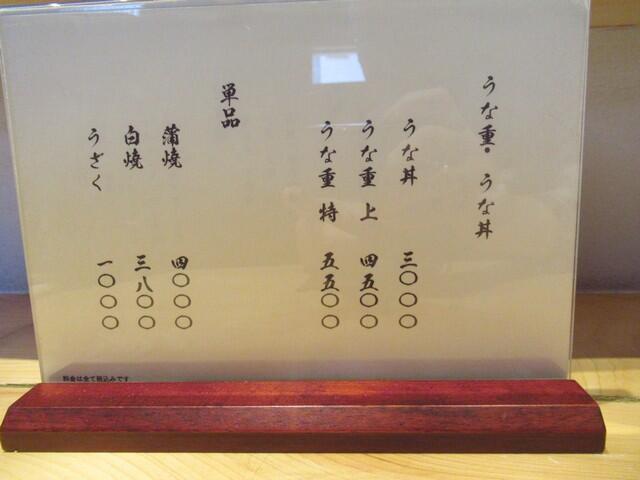 うな重・うな丼
うな丼 三〇〇〇
うな重 上 四五〇〇
うな重 特 五五〇〇
単品
蒲焼 四〇〇〇
白焼 三八〇〇
うざく 一〇〇〇
料金は全て税込みです